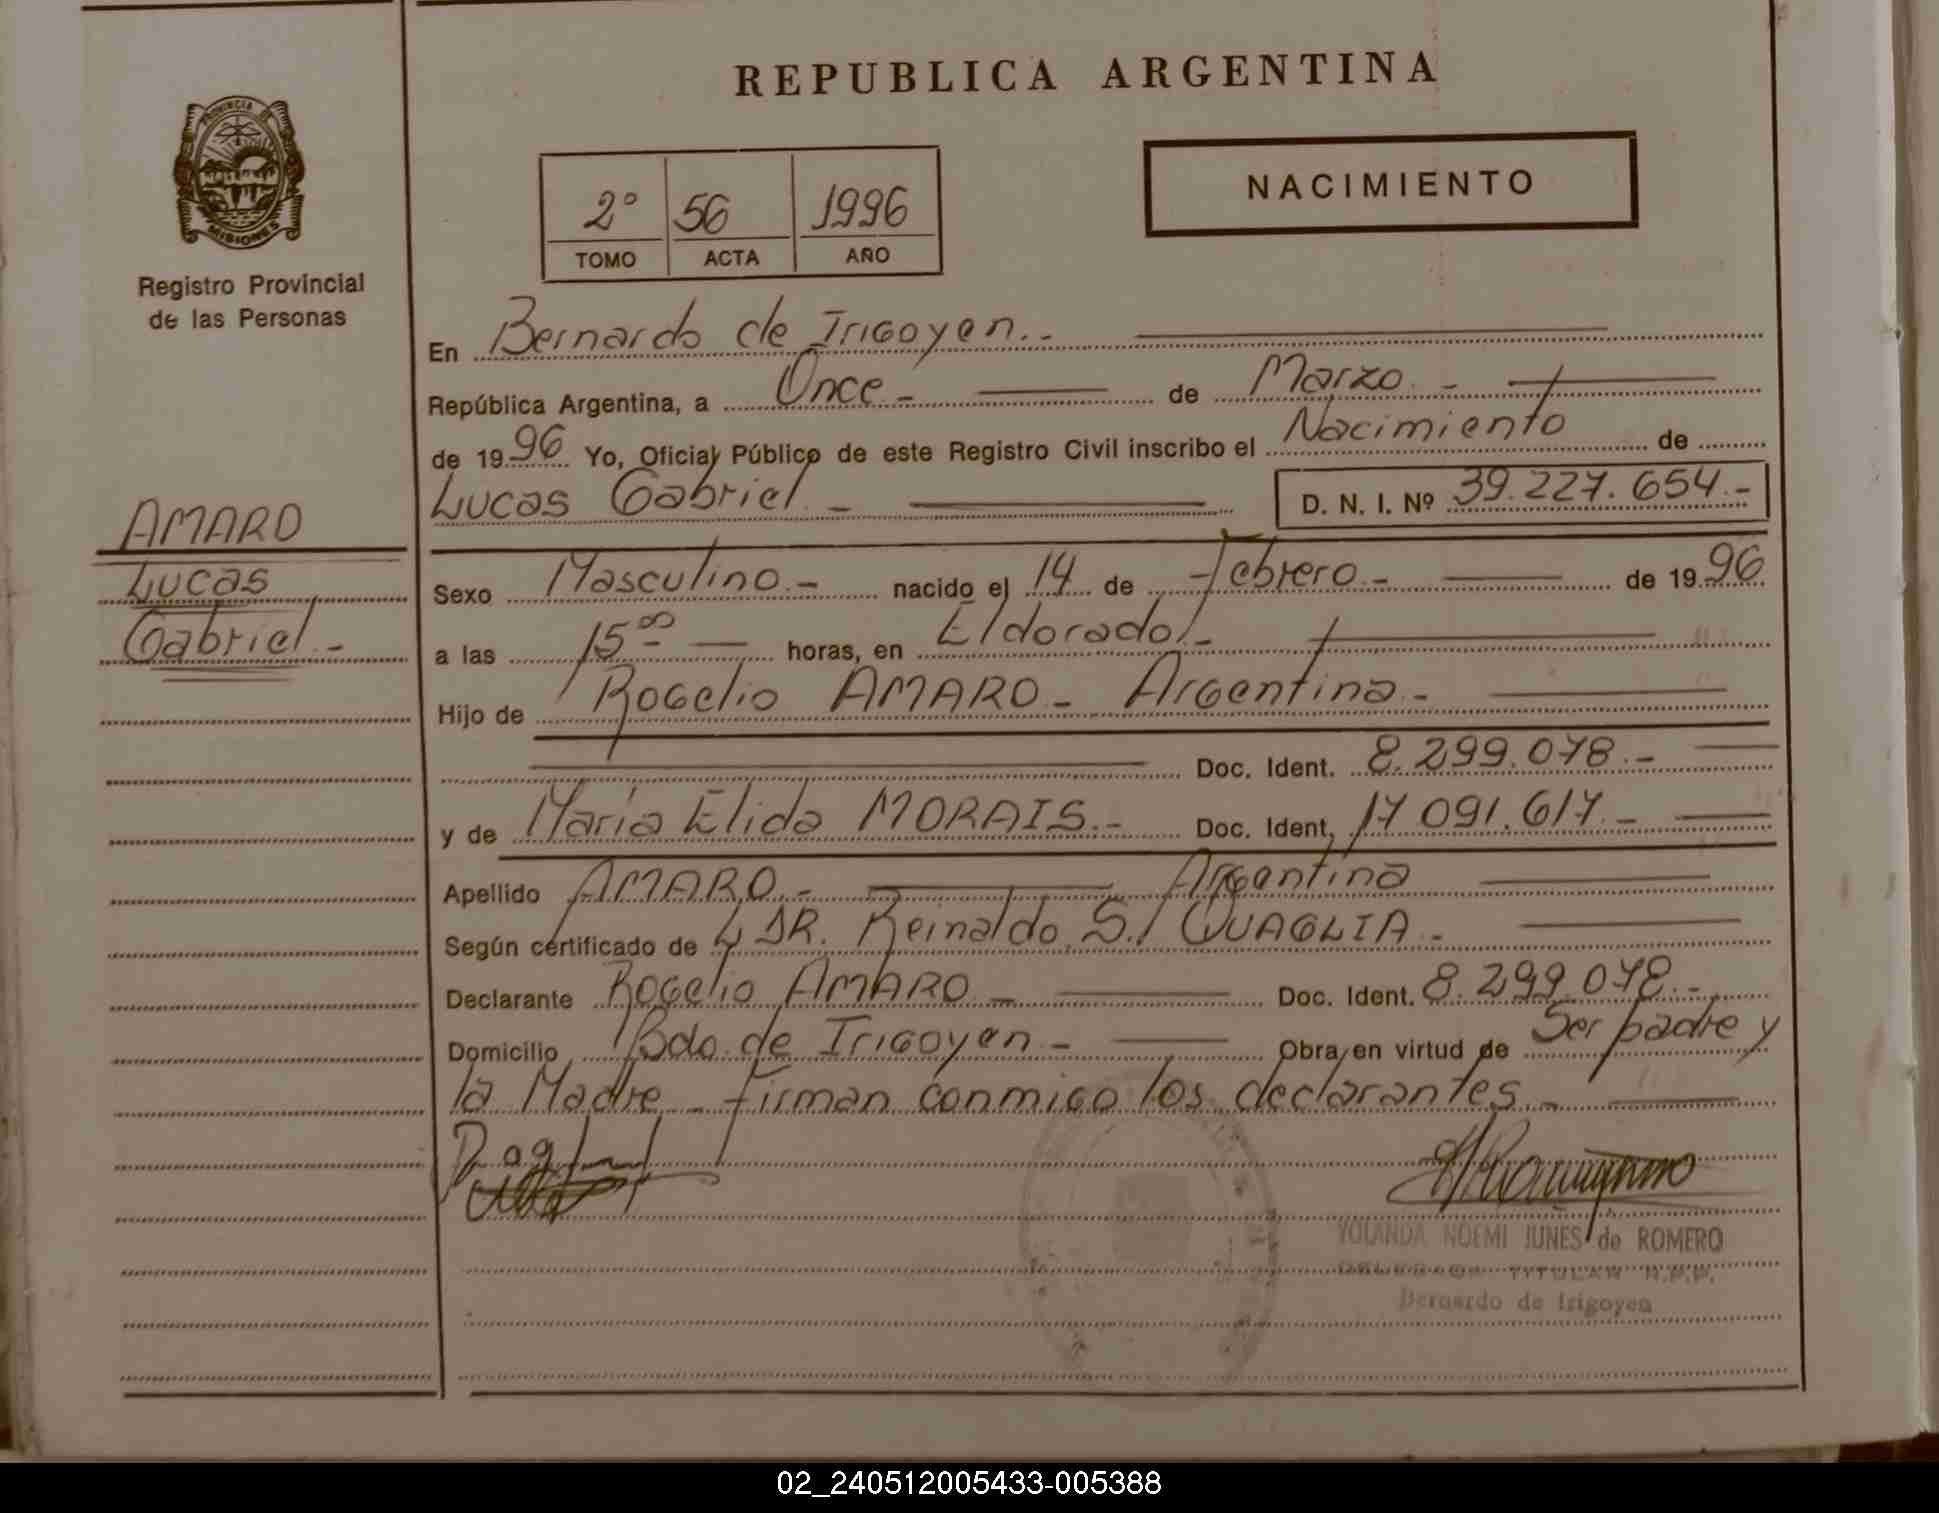 REPUBLICA ARGENTINA
PROVINCIA DE
MISIONES
Registro Provincial
de las Personas
NACIMIENTO
2º 56 1996
TOMO ACTA AÑO
En Bernardo de Irigoyen.-
República Argentina, a Once.- de Marzo.-
de 1996 Yo, Oficial Público de este Registro Civil inscribo el Nacimiento de
Lucas Gabriel.- D. N. I. Nº 39.227.654.-
AMARO
Lucas
Gabriel.-
Sexo Masculino.- nacido el 14 de Febrero.- de 1996
a las 15 00 horas, en Eldorado.-
Hijo de Rogelio AMARO - Argentina.-
Doc. Ident. 8.299.078.-
y de María Elida MORAIS.- Doc. Ident. 17.091.617.-
Apellido AMARO.- Argentina
Según certificado de DR. Reinaldo S. QUAGLIA.-
Declarante Rogelio AMARO - Doc. Ident. 8.299.078.-
Domicilio Bdo. de Irigoyen - Obra en virtud de Ser padre y
la Madre - firman conmigo los declarantes.-
YOLANDA NOEMI JUNES de ROMERO
DELEGADA TITULAR R.P.P.
Bernardo de Irigoyen
02_240512005433-005388